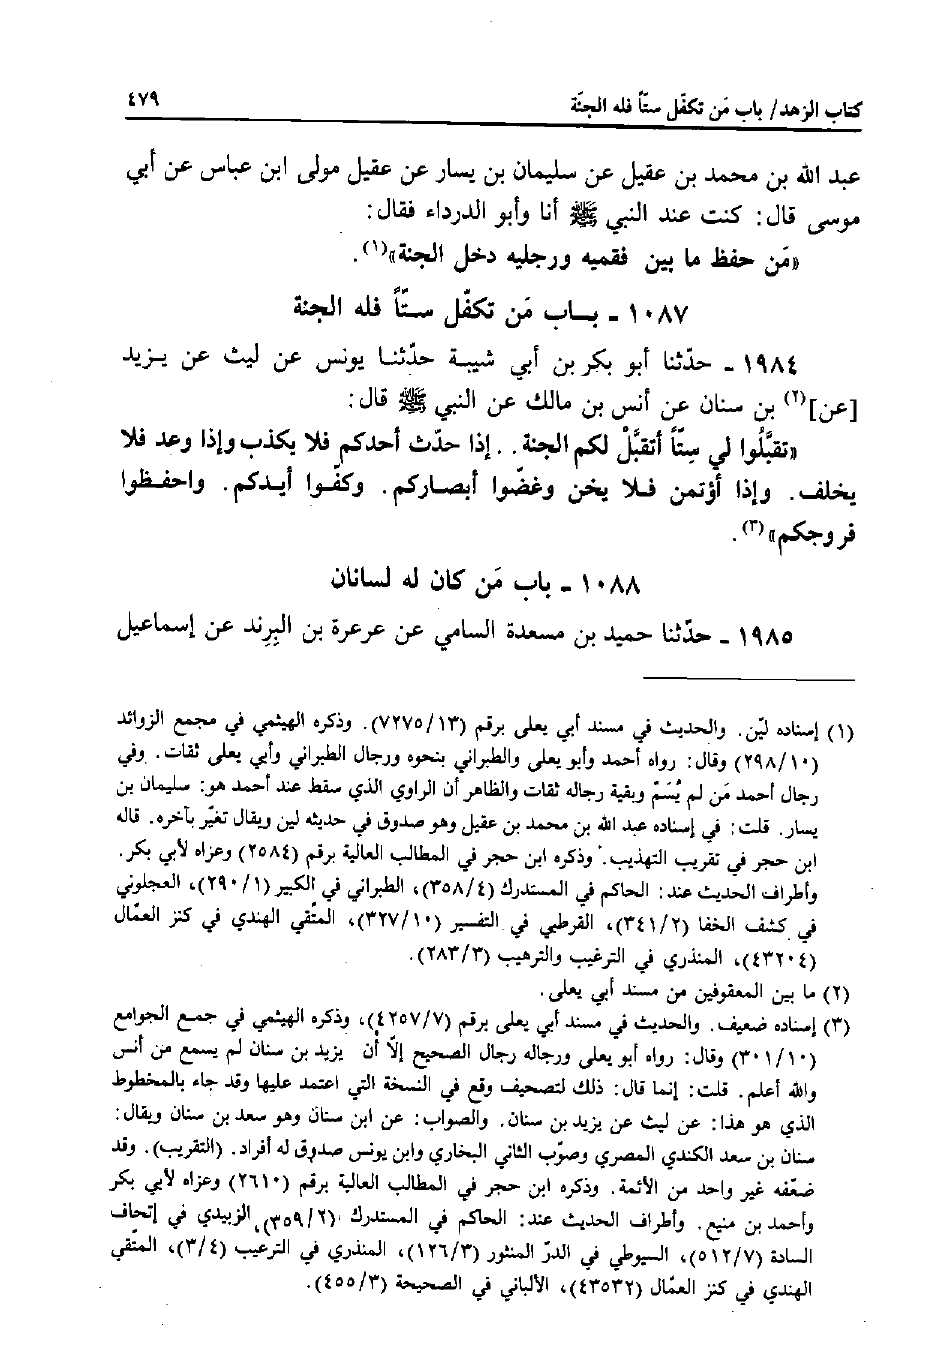 كتاب الزهد/ باب مَن تكفّل ستّاً فله الجنّة ٤٧٩
عبد الله بن محمد بن عقيل عن سليمان بن يسار عن عقيل مولى ابن عباس عن أبي
موسى قال: كنت عند النبي ﷺ أنا وأبو الدرداء فقال:
«مَن حفظ ما بين فقميه ورجليه دخل الجنة»(١).
١٠٨٧ ـ بـاب مَن تكفّل ستّاً فله الجنة
١٩٨٤ ـ حدّثنا أبو بكر بن أبي شيبة حدّثنا يونس عن ليث عن يزيد
[عن](٢) بن سنان عن أنس بن مالك عن النبي ﷺ قال:
«تقبَّلُوا لي سِتّاً أتقبَّلْ لكم الجنة. . إذا حدّث أحدكم فلا يكذب وإذا وعد فلا
يخلف. وإذا أؤتمن فلا يخن وغضّوا أبصاركم. وكفّوا أيدكم. واحفظوا
فروجكم»(٣).
١٠٨٨ ـ باب مَن كان له لسانان
١٩٨٥ ـ حدّثنا حميد بن مسعدة السامي عن عرعرة بن البِرِند عن إسماعيل
(١) إسناده ليّن. والحديث في مسند أبي يعلى برقم (٧٢٧٥/١٣). وذكره الهيثمي في مجمع الزوائد
(٢٩٨/١٠) وقال: رواه أحمد وأبو يعلى والطبراني بنحوه ورجال الطبراني وأبي يعلى ثقات. وفي
رجال أحمد مَن لم يُسَمّ وبقية رجاله ثقات والظاهر أن الراوي الذي سقط عند أحمد هو: سليمان بن
يسار. قلت: في إسناده عبد الله بن محمد بن عقيل وهو صدوق في حديثه لين ويقال تغيّر بآخره. قاله
ابن حجر في تقريب التهذيب. وذكره ابن حجر في المطالب العالية برقم (٢٥٨٤) وعزاه لأبي بكر.
وأطراف الحديث عند: الحاكم في المستدرك (٣٥٨/٤)، الطبراني في الكبير (٢٩٠/١)، العجلوني
في كشف الخفا (٣٤١/٢)، القرطبي في التفسير (٣٢٧/١٠)، المتّقي الهندي في كنز العمّال
(٤٣٢٠٤)، المنذري في الترغيب والترهيب (٢٨٣/٣).
(٢) ما بين المعقوفين من مسند أبي يعلى.
(٣) إسناده ضعيف. والحديث في مسند أبي يعلى برقم (٤٢٥٧/٧)، وذكره الهيثمي في جمع الجوامع
(٣٠١/١٠) وقال: رواه أبو يعلى ورجاله رجال الصحيح إلّا أن يزيد بن سنان لم يسمع من أنس
والله أعلم. قلت: إنما قال: ذلك لتصحيف وقع في النسخة التي اعتمد عليها وقد جاء بالمخطوط
الذي هو هذا: عن ليث عن يزيد بن سنان. والصواب: عن ابن سنان وهو سعد بن سنان ويقال:
سنان بن سعد الكندي المصري وصوّب الثاني البخاري وابن يونس صدوق له أفراد. (التقريب). وقد
ضعّفه غير واحد من الأئمة. وذكره ابن حجر في المطالب العالية برقم (٢٦١٠) وعزاه لأبي بكر
وأحمد بن منيع. وأطراف الحديث عند: الحاكم في المستدرك (٣٥٩/٢)، الزبيدي في إتحاف
السادة (٥١٢/٧)، السيوطي في الدرّ المنثور (١٢٦/٣)، المنذري في الترعيب (٣/٤)، المتّقي
الهندي في كنز العمّال (٤٣٥٣٢)، الألباني في الصحيحة (٤٥٥/٣).